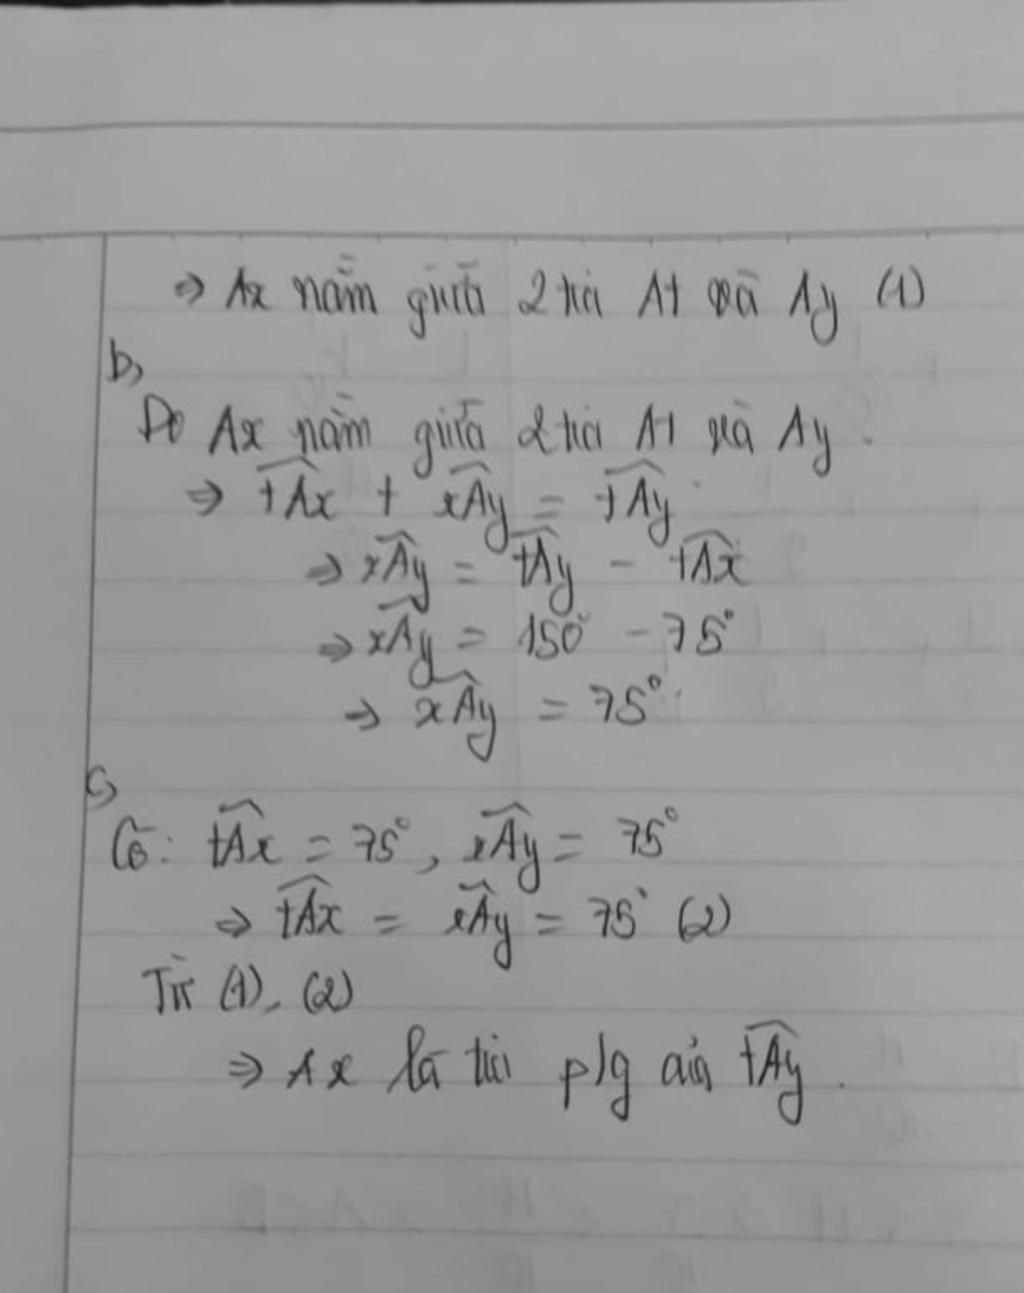 ⇒ Ax nằm giữa 2 tia At và Ay (1)
b,
Do Ax nằm giữa 2 tia At và Ay.
⇒ \widehat{tAx} + \widehat{xAy} = \widehat{tAy}
⇒ \widehat{xAy} = \widehat{tAy} - \widehat{tAx}
⇒ \widehat{xAy} = 150° - 75°
⇒ \widehat{xAy} = 75°
c,
Có: \widehat{tAx} = 75°, \widehat{xAy} = 75°
⇒ \widehat{tAx} = \widehat{xAy} = 75° (2)
Từ (1), (2)
⇒ Ax là tia p/g của \widehat{tAy}.